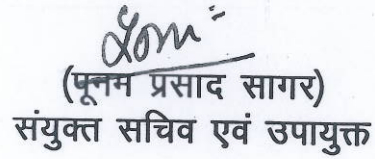 (पूनम प्रसाद सागर)
संयुक्त सचिव एवं उपायुक्त